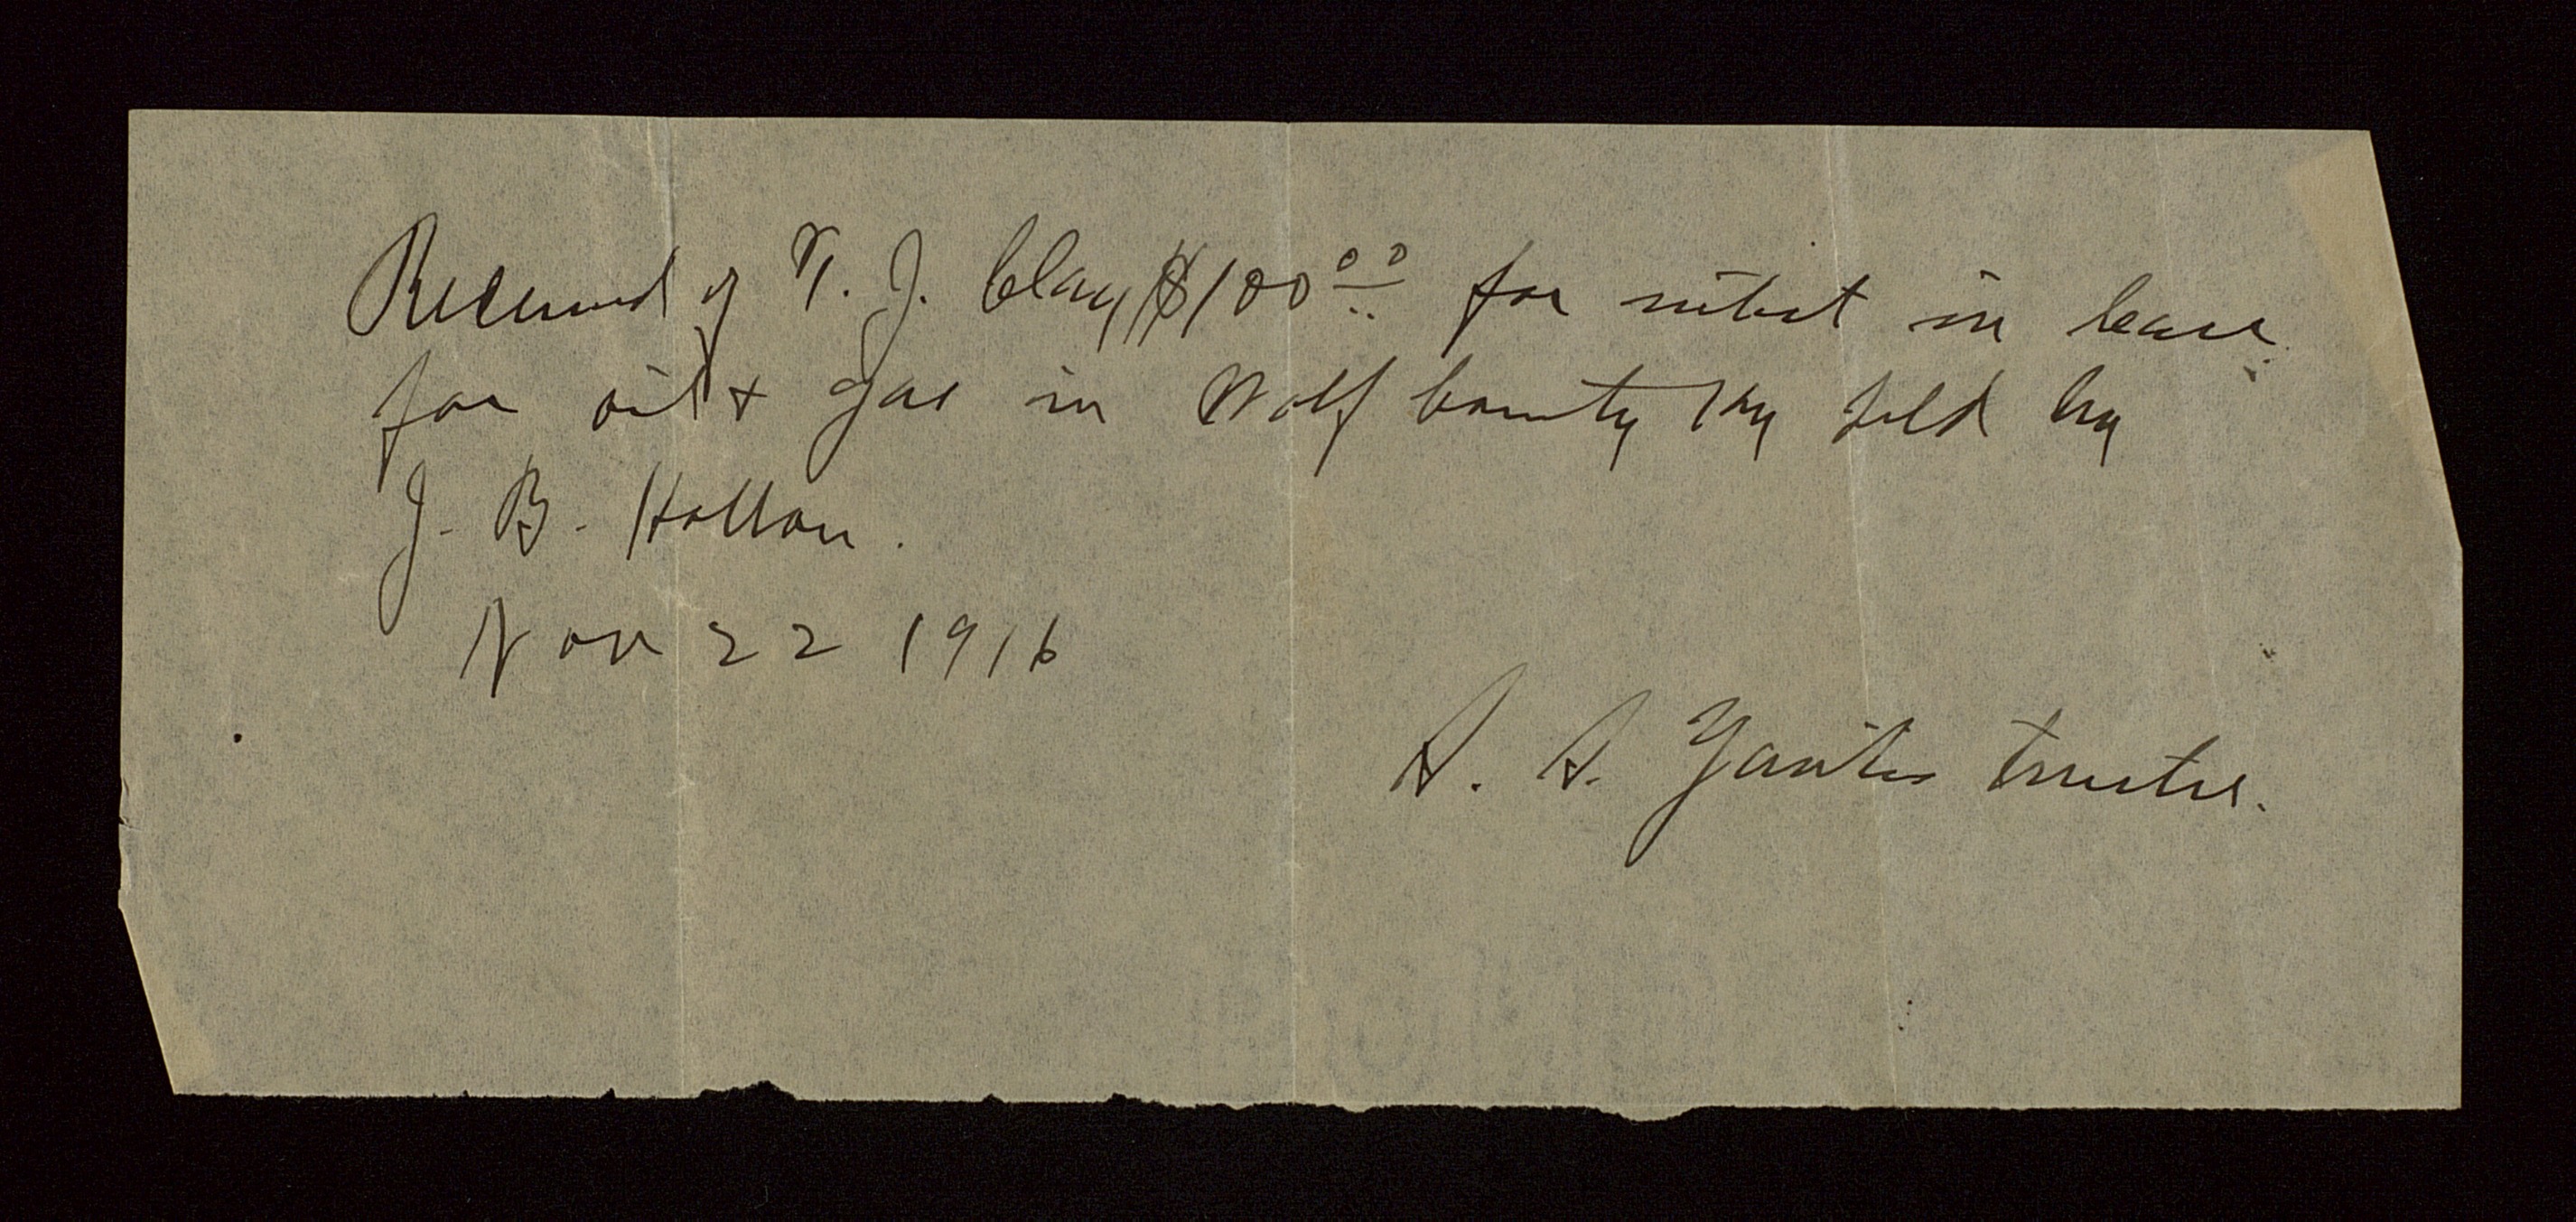 Received of T. J. Clay $100.00 for intrest in lease
for oil & gas in Wolf County Ky held by
J. B. Hollon.
Nov 22 1916
S. S. Yantis trustee.